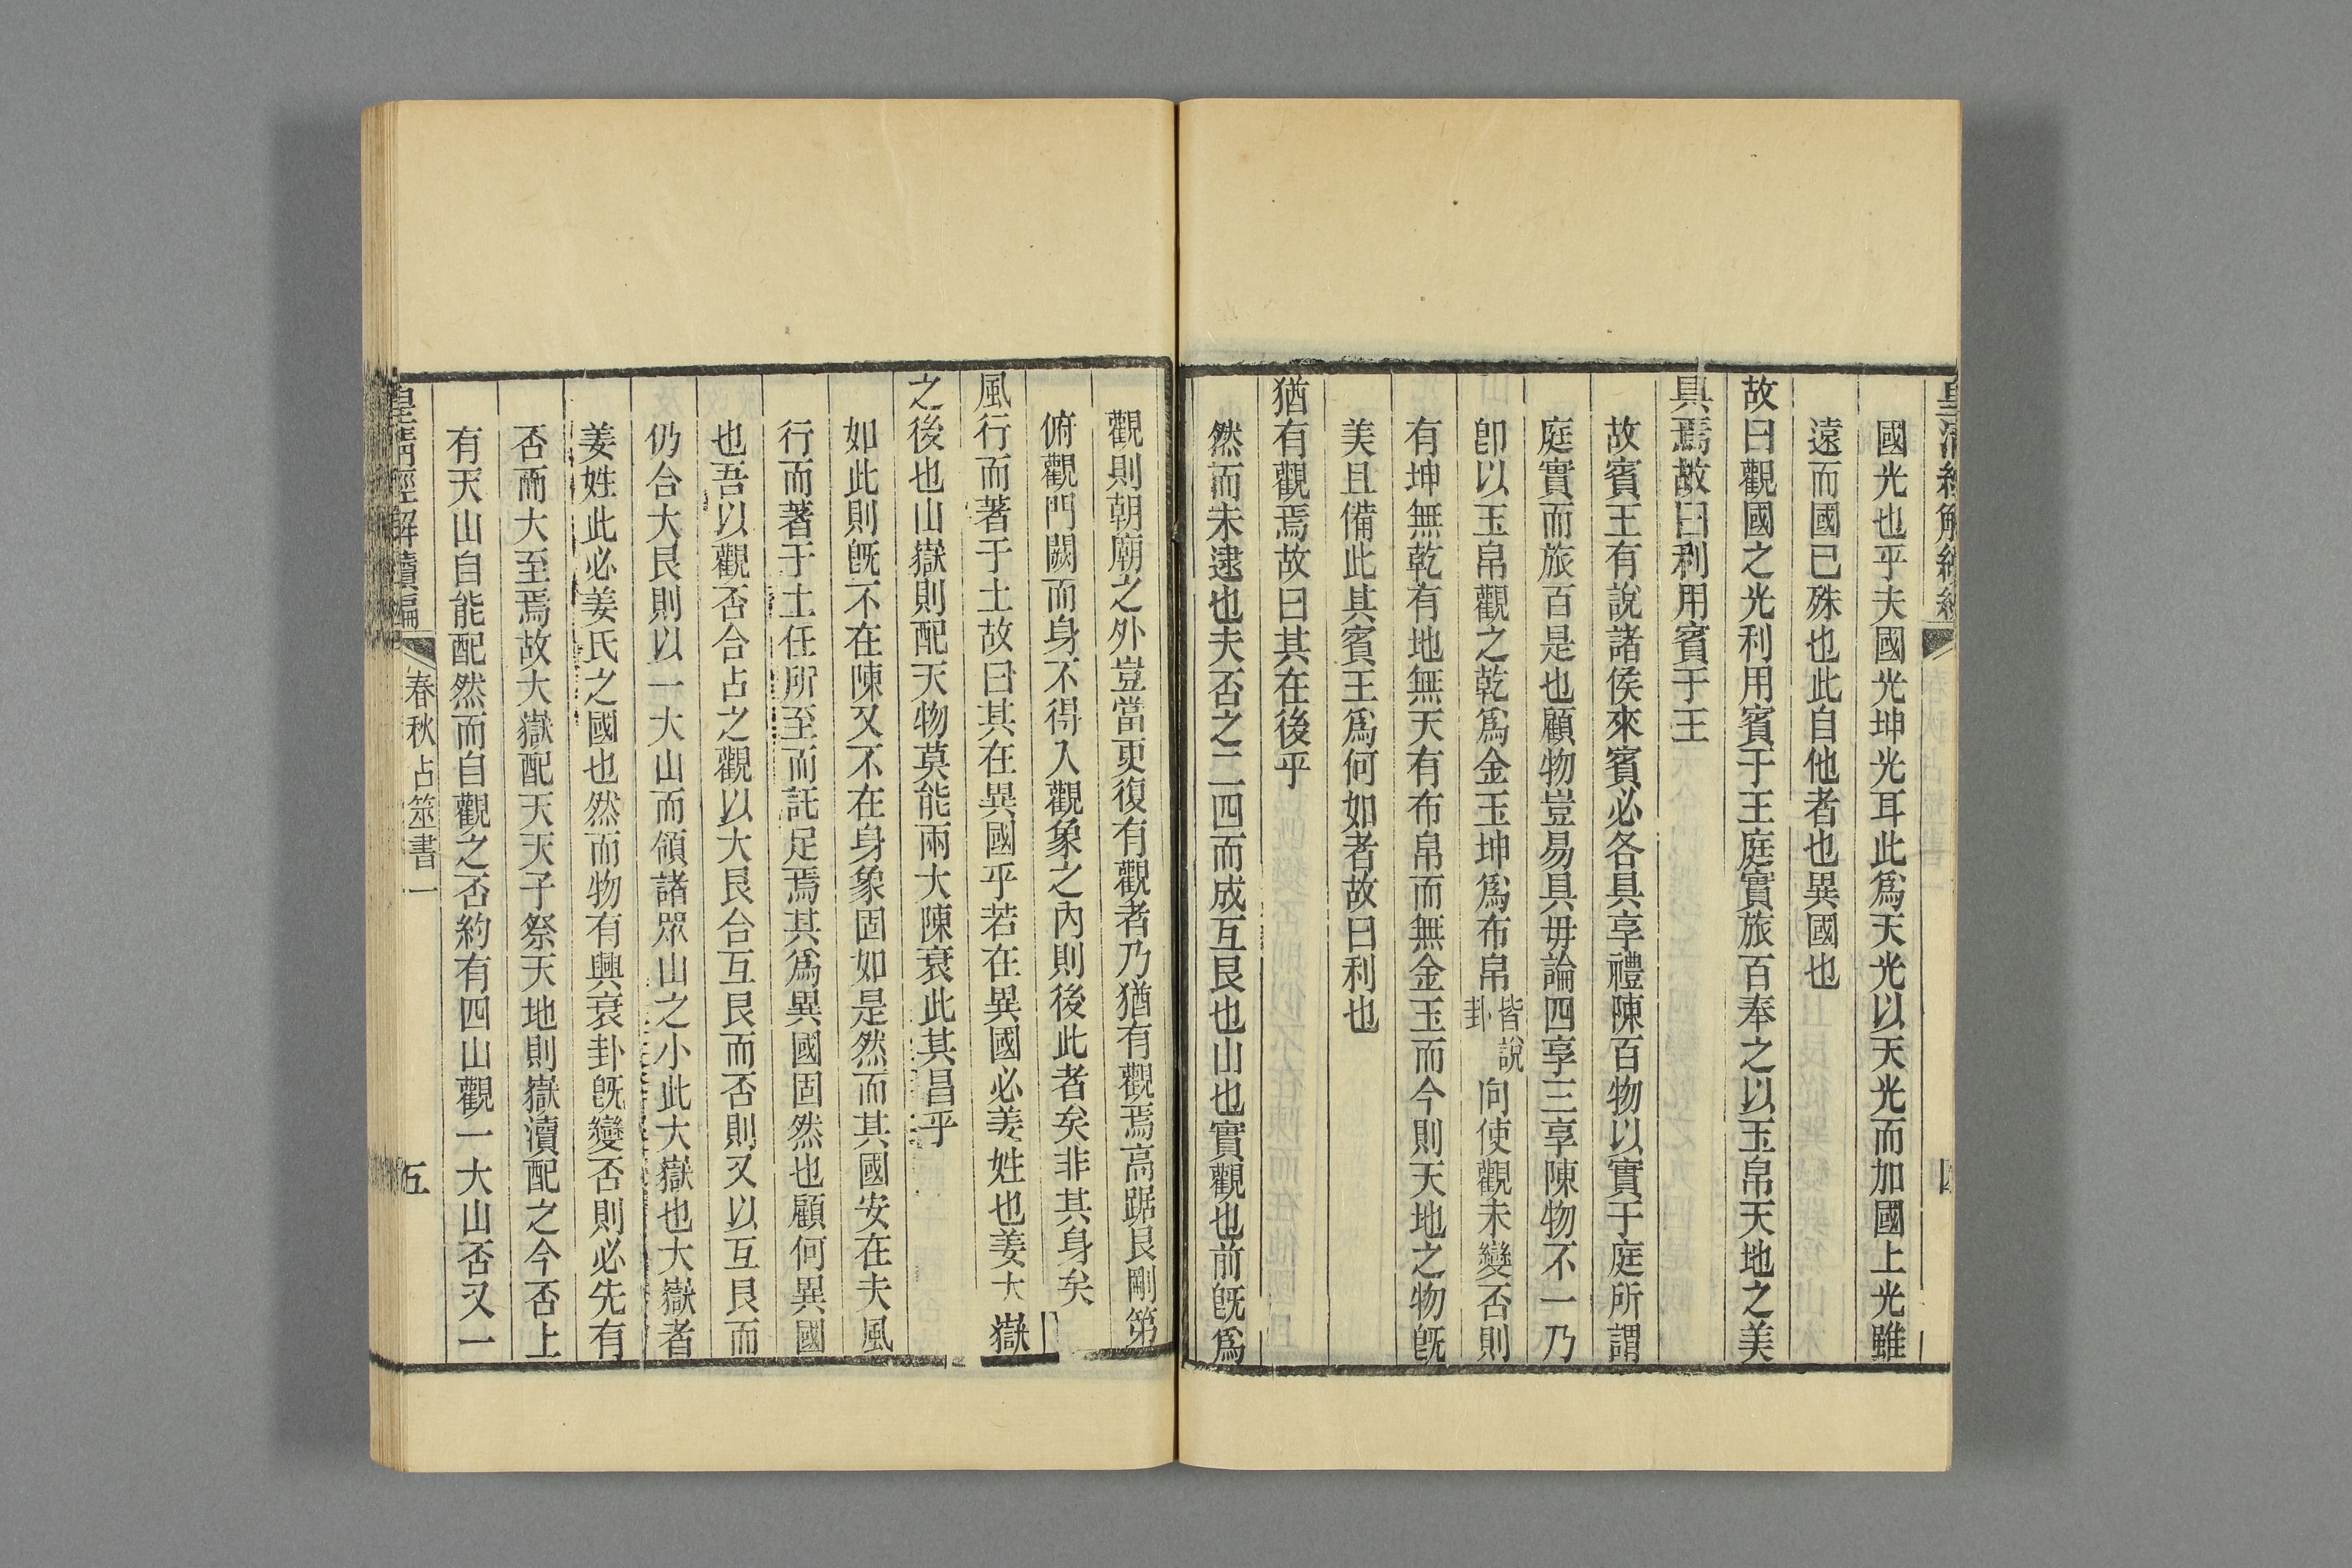 國光也乎夫國光坤光耳此爲天光以天光而加國上光雖
遠而國已殊也此自他者也異國也
故曰觀國之光利用賓于王庭實旅百奉之以玉帛天地之美
具焉故曰利用賓于王
故賓王有說諸侯來賓必各具享禮陳百物以實于庭所謂
庭實而旅百是也顧物豈易具毋論四享三享陳物不一乃
卽以玉帛觀之乾爲金玉坤爲布帛皆說卦向使觀未變否則
有坤無乾有地無天有布帛而無金玉而今則天地之物旣
美且備此其賓王爲何如者故曰利也
猶有觀焉故曰其在後乎
然而未逮也夫否之二四而成互艮也山也實觀也前旣爲
觀則朝廟之外豈當更復有觀者乃猶有觀焉高踞艮剛第
俯觀門闕而身不得入觀象之內則後此者矣非其身矣
風行而著于土故曰其在異國乎若在異國必姜姓也姜大嶽
之後也山嶽則配天物莫能兩大陳衰此其昌乎
如此則旣不在陳又不在身象固如是然而其國安在夫風
行而著于土任所至而託足焉其爲異國固然也顧何異國
也吾以觀否合占之觀以大艮合互艮而否則又以互艮而
仍合大艮則以一大山而領諸眾山之小此大嶽也大嶽者
姜姓此必姜氏之國也然而物有興衰卦旣變否則必先有
否而大至焉故大嶽配天天子祭天地則嶽瀆配之今否上
有天山自能配然而自觀之否約有四山觀一大山否又一
皇清經解續編
春秋占筮書一
五